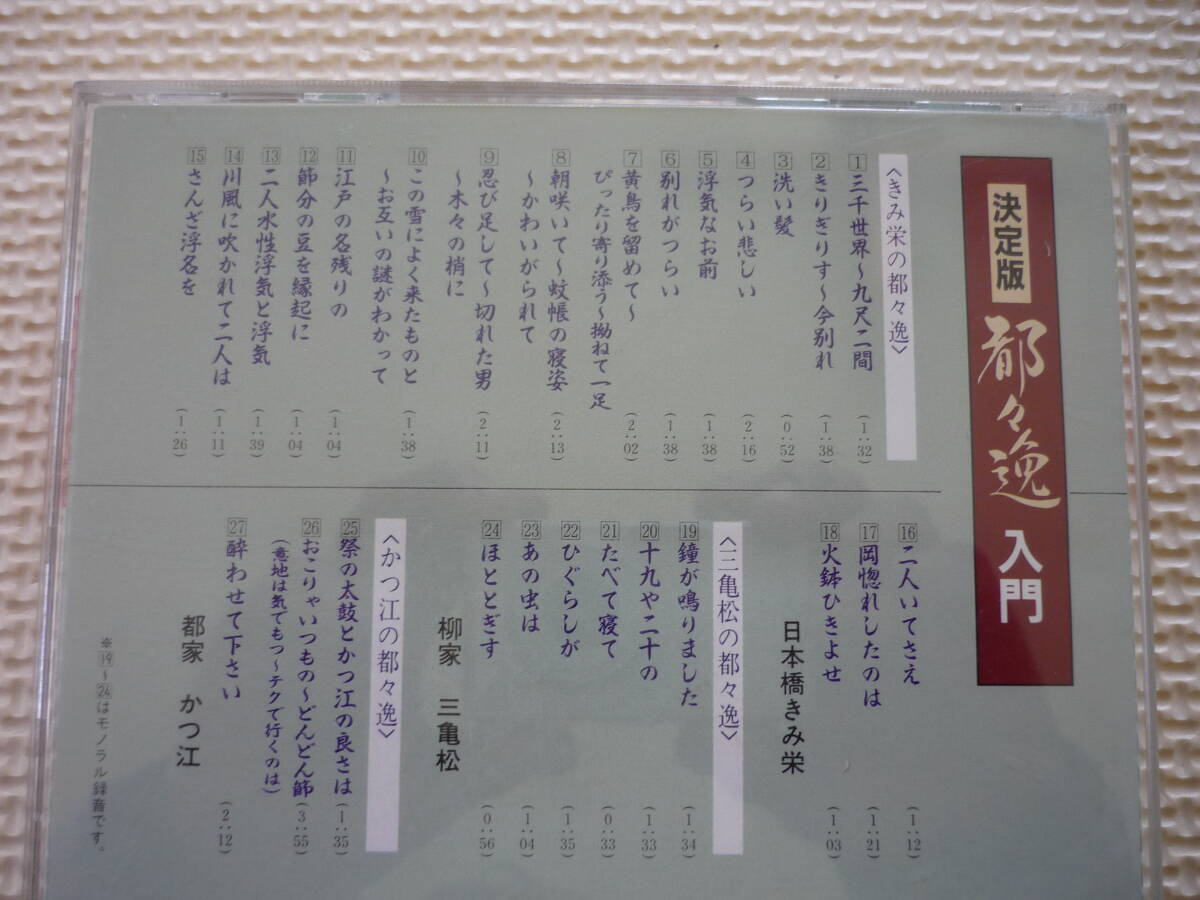 決定版 都々逸 入門
〈きみ栄の都々逸〉
1 三千世界〜九尺二間 (1:32)
2 きりぎりす〜今別れ (1:38)
3 洗い髪 (0:52)
4 つらい悲しい (2:16)
5 浮気なお前 (1:38)
6 別れがつらい (1:38)
7 黄鳥を留めて〜
ぴったり寄り添う〜拗ねて一足 (2:02)
8 朝咲いて〜蚊帳の寝姿
〜かわいがられて (2:13)
9 忍び足して〜切れた男
〜木々の梢に (2:11)
10 この雪によく来たものと
〜お互いの謎がわかって (1:38)
11 江戸の名残りの (1:04)
12 節分の豆を縁起に (1:04)
13 二人水性浮気と浮気 (1:39)
14 川風に吹かれて二人は (1:11)
15 さんざ浮名を (1:26)
16 二人いてさえ (1:12)
17 岡惚れしたのは (1:21)
18 火鉢ひきよせ (1:03)
日本橋きみ栄
〈三亀松の都々逸〉
19 鐘が鳴りました (1:34)
20 十九や二十の (1:33)
21 たべて寝て (0:33)
22 ひぐらしが (1:35)
23 あの虫は (1:04)
24 ほととぎす (0:56)
柳家 三亀松
〈かつ江の都々逸〉
25 祭の太鼓とかつ江の良さは (1:35)
26 おこりゃいつもの〜どんどん節 (3:55)
(意地は気でもつ〜テクで行くのは)
27 酔わせて下さい (2:12)
都家 かつ江
※19〜24はモノラル録音です。